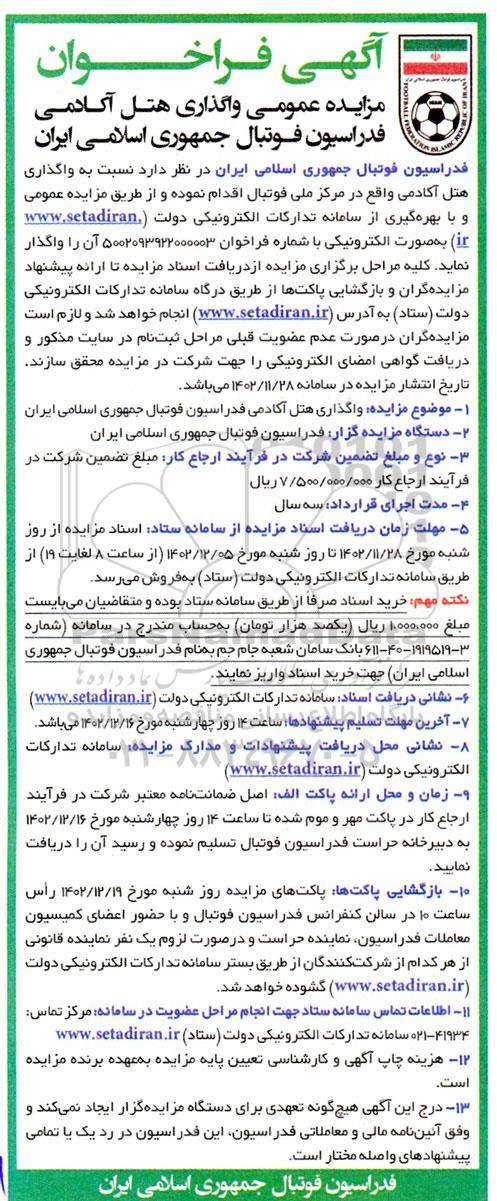 آگهی فراخوان
مزایده عمومی واگذاری هتل آکادمی
فدراسیون فوتبال جمهوری اسلامی ایران
FOOTBALL FEDERATION ISLAMIC REPUBLIC OF IRAN
فدراسیون فوتبال جمهوری اسلامی ایران در نظر دارد نسبت به واگذاری
هتل آکادمی واقع در مرکز ملی فوتبال اقدام نموده و از طریق مزایده عمومی
و با بهره‌گیری از سامانه تدارکات الکترونیکی دولت (www.setadiran.
ir) به‌صورت الکترونیکی با شماره فراخوان ۵۰۰۲۰۹۳۹۲۲۰۰۰۰۰۳ آن را واگذار
نماید. کلیه مراحل برگزاری مزایده ازدریافت اسناد مزایده تا ارائه پیشنهاد
مزایده‌گران و بازگشایی پاکت‌ها از طریق درگاه سامانه تدارکات الکترونیکی
دولت (ستاد) به آدرس (www.setadiran.ir) انجام خواهد شد و لازم است
مزایده‌گران درصورت عدم عضویت قبلی مراحل ثبت‌نام در سایت مذکور و
دریافت گواهی امضای الکترونیکی را جهت شرکت در مزایده محقق سازند.
تاریخ انتشار مزایده در سامانه ۱۴۰۲/۱۱/۲۸ می‌باشد.
۱- موضوع مزایده: واگذاری هتل آکادمی فدراسیون فوتبال جمهوری اسلامی ایران
۲- دستگاه مزایده گزار: فدراسیون فوتبال جمهوری اسلامی ایران
۳- نوع و مبلغ تضمین شرکت در فرآیند ارجاع کار: مبلغ تضمین شرکت در
فرآیند ارجاع کار ۷/۵۰۰/۰۰۰/۰۰۰ ریال
۴- مدت اجرای قرارداد: سه سال
۵- مهلت زمان دریافت اسناد مزایده از سامانه ستاد: اسناد مزایده از روز
شنبه مورخ ۱۴۰۲/۱۱/۲۸ تا روز شنبه مورخ ۱۴۰۲/۱۲/۰۵ (از ساعت ۸ لغایت ۱۹) از
طریق سامانه تدارکات الکترونیکی دولت (ستاد) به‌فروش می‌رسد.
نکته مهم: خرید اسناد صرفا از طریق سامانه ستاد بوده و متقاضیان می‌بایست
مبلغ ۱.۰۰۰.۰۰۰ ریال (یکصد هزار تومان) به‌حساب مندرج در سامانه (شماره
۳-۱۹۱۹۵۱۹-۴۰-۶۱۱ بانک سامان شعبه جام جم به‌نام فدراسیون فوتبال جمهوری
اسلامی ایران) جهت خرید اسناد واریز نمایند.
۶- نشانی دریافت اسناد: سامانه تدارکات الکترونیکی دولت (www.setadiran.ir)
۷- آخرین مهلت تسلیم پیشنهادها: ساعت ۱۴ روز چهارشنبه مورخ ۱۴۰۲/۱۲/۱۶ می‌باشد.
۸- نشانی محل دریافت پیشنهادات و مدارک مزایده: سامانه تدارکات
الکترونیکی دولت (www.setadiran.ir)
۹- زمان و محل ارائه پاکت الف: اصل ضمانت‌نامه معتبر شرکت در فرآیند
ارجاع کار در پاکت مهر و موم شده تا ساعت ۱۴ روز چهارشنبه مورخ ۱۴۰۲/۱۲/۱۶
به دبیرخانه حراست فدراسیون فوتبال تسلیم نموده و رسید آن را دریافت
نمایید.
۱۰- بازگشایی پاکت‌ها: پاکت‌های مزایده روز شنبه مورخ ۱۴۰۲/۱۲/۱۹ رأس
ساعت ۱۰ در سالن کنفرانس فدراسیون فوتبال و با حضور اعضای کمیسیون
معاملات فدراسیون، نماینده حراست و درصورت لزوم یک نفر نماینده قانونی
از هر کدام از شرکت‌کنندگان از طریق بستر سامانه تدارکات الکترونیکی دولت
(www.setadiran.ir) گشوده خواهد شد.
۱۱- اطلاعات تماس سامانه ستاد جهت انجام مراحل عضویت در سامانه: مرکز تماس:
۰۲۱-۴۱۹۳۴ سامانه تدارکات الکترونیکی دولت (ستاد) www.setadiran.ir
۱۲- هزینه چاپ آگهی و کارشناسی تعیین پایه مزایده به‌عهده برنده مزایده
است.
۱۳- درج این آگهی هیچ‌گونه تعهدی برای دستگاه مزایده‌گزار ایجاد نمی‌کند و
وفق آئین‌نامه مالی و معاملاتی فدراسیون، این فدراسیون در رد یک یا تمامی
پیشنهادهای واصله مختار است.
فدراسیون فوتبال جمهوری اسلامی ایران